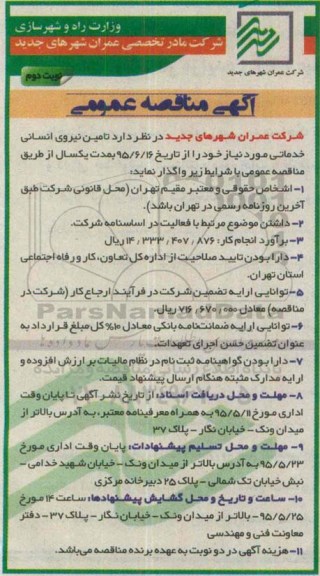 وزارت راه و شهرسازی
شرکت مادر تخصصی عمران شهرهای جدید
شرکت عمران شهرهای جدید
نوبت دوم
آگهی مناقصه عمومی
شرکت عمران شهرهای جدید در نظر دارد تامین نیروی انسانی
خدماتی مورد نیاز خود را از تاریخ ۹۵/۶/۱۶ بمدت یکسال از طریق
مناقصه عمومی با شرایط زیر واگذار نماید:
۱- اشخاص حقوقی و معتبر مقیم تهران (محل قانونی شرکت طبق
آخرین روزنامه رسمی در تهران باشد).
۲- داشتن موضوع مرتبط با فعالیت در اساسنامه شرکت.
۳- برآورد انجام کار: ۱۴٫۳۳۳٫۴۰۷٫۸۷۶ ریال
۴- دارا بودن تایید صلاحیت از اداره کل تعاون، کار و رفاه اجتماعی
استان تهران.
۵- توانایی ارایه تضمین شرکت در فرآیند ارجاع کار (شرکت در
مناقصه) معادل ۷۱۶٫۶۷۰٫۰۰۰ ریال.
۶- توانایی ارایه ضمانت‌نامه بانکی معادل ۱۰% کل مبلغ قرارداد به
عنوان تضمین حسن اجرای تعهدات.
۷- دارا بودن گواهینامه ثبت نام در نظام مالیات بر ارزش افزوده و
ارایه مدارک مثبته هنگام ارسال پیشنهاد قیمت.
۸- مهلت و محل دریافت اسناد: از تاریخ نشر آگهی تا پایان وقت
اداری مورخ ۹۵/۵/۱۱ به همراه معرفینامه معتبر، به آدرس بالاتر از
میدان ونک - خیابان نگار - پلاک ۳۷
۹- مهلت و محل تسلیم پیشنهادات: پایان وقت اداری مورخ
۹۵/۵/۲۳ به آدرس بالاتر از میدان ونک - خیابان شهید خدامی -
نبش خیابان تک شمالی - پلاک ۲۵ دبیرخانه مرکزی
۱۰- ساعت و تاریخ و محل گشایش پیشنهادها: ساعت ۱۴ مورخ
۹۵/۵/۲۵ - بالاتر از میدان ونک - خیابان نگار - پلاک ۳۷ - دفتر
معاونت فنی و مهندسی
۱۱- هزینه آگهی در دو نوبت به عهده برنده مناقصه می‌باشد.
ParsNamadData